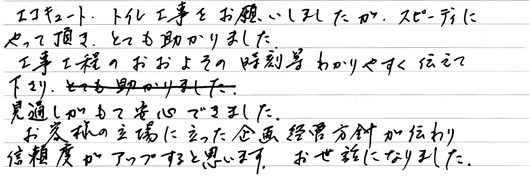 エコキュート、トイレ工事をお願いしましたが、スピーディに
やって頂き、とても助かりました
工事工程のおおよその時刻等わかりやすく伝えて
下さり、とても助かりました。
見通しがもて安心できました。
お客様の立場に立った企画経営方針が伝わり
信頼度がアップすると思います。お世話になりました。